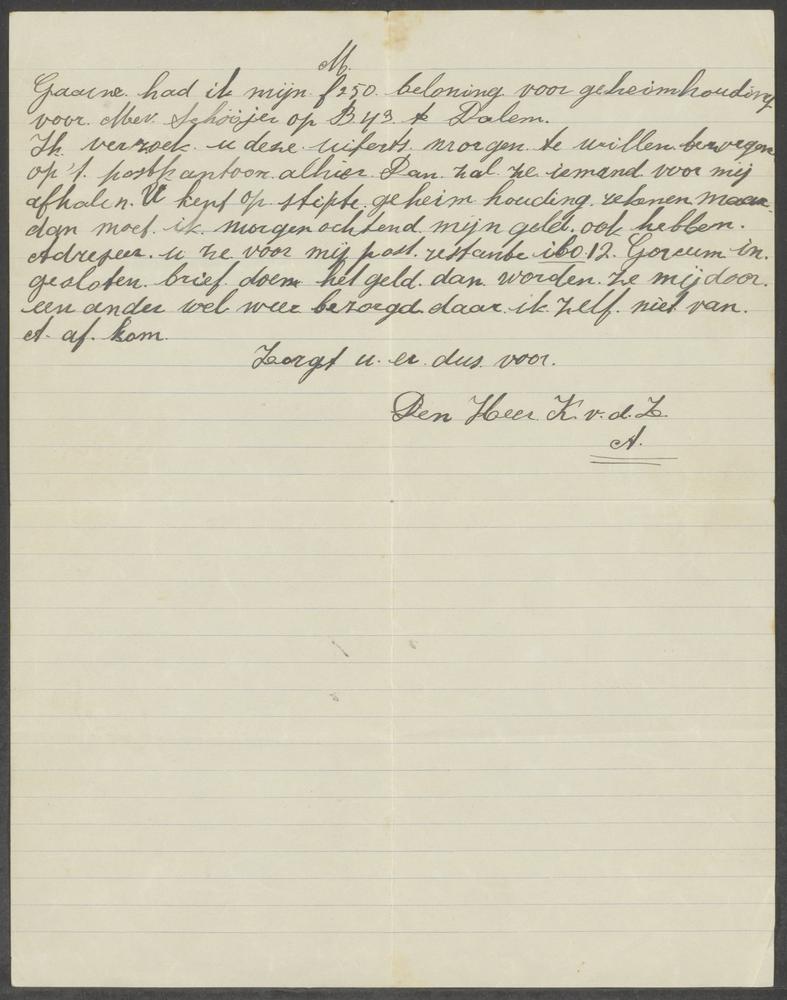 M.
Gaarne. had ik mijn. f 250. beloning voor geheimhouding
voor. Mev. Schooijer op B 43. te Dalem.
Ik verzoek. u deze. uiterts. morgen. te willen. bezorgen
op 't. postkantoor. alhier. Dan. zal. ze iemand voor mij
afhalen. U kent op stipte. geheim houding. rekenen maar.
dan moet. ik. morgen ochtend. mijn geld. ook hebben.
Adreseer. u ze voor mij post. restante ibo. 12. Gorcum in.
gesloten. brief. doem het geld. dan. worden. ze mij door.
een ander wel weer bezorgd. daar. ik. zelf. niet van.
A. af. kom.
Zorgt u. er. dus. voor.
Den Heer. K. v. d. Z.
A.